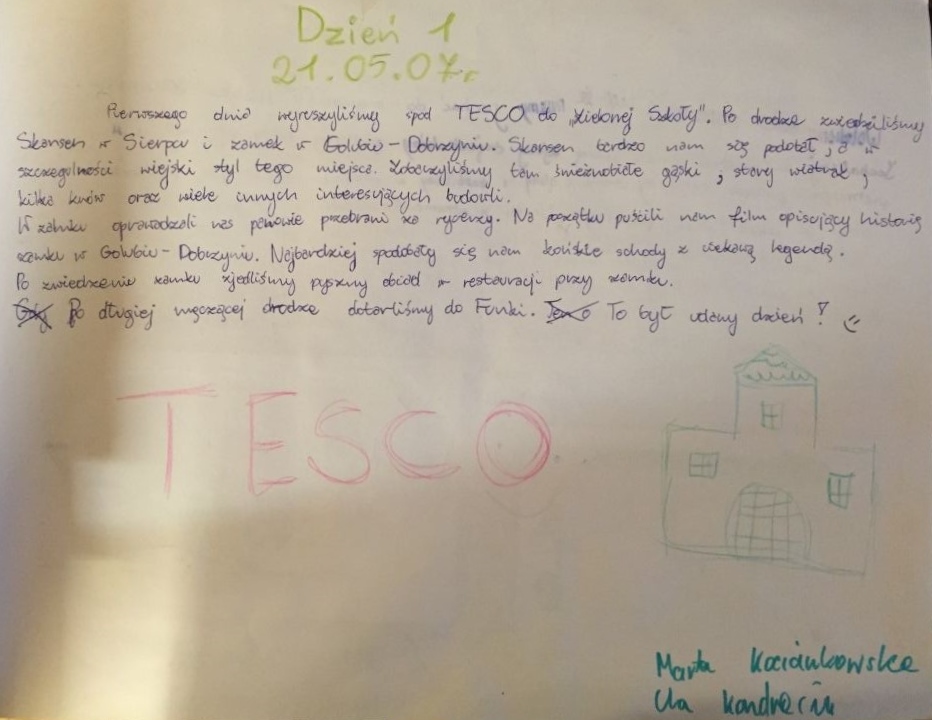 Dzień 1
21.05.07r.
Pierwszego dnia wyruszyliśmy spod TESCO do "Zielonej Szkoły". Po drodze zwiedziliśmy
Skansen w Sierpcu i zamek w Golubiu-Dobrzyniu. Skansen bardzo nam się podobał, a w
szczególności wiejski styl tego miejsca. Zobaczyliśmy tam śnieżnobiałe gąski, stary wiatrak,
kilka krów oraz wiele innych interesujących budowli.
W zamku oprowadzali nas panowie przebrani za rycerzy. Na początku puścili nam film opisujący historię
zamku w Golubiu-Dobrzyniu. Najbardziej spodobały się nam końskie schody z ciekawą legendą.
Po zwiedzeniu zamku zjedliśmy pyszny obiad w restauracji przy zamku.
Po długiej męczącej drodze dotarliśmy do Funki. To był udany dzień!
TESCO
Marta
Ula